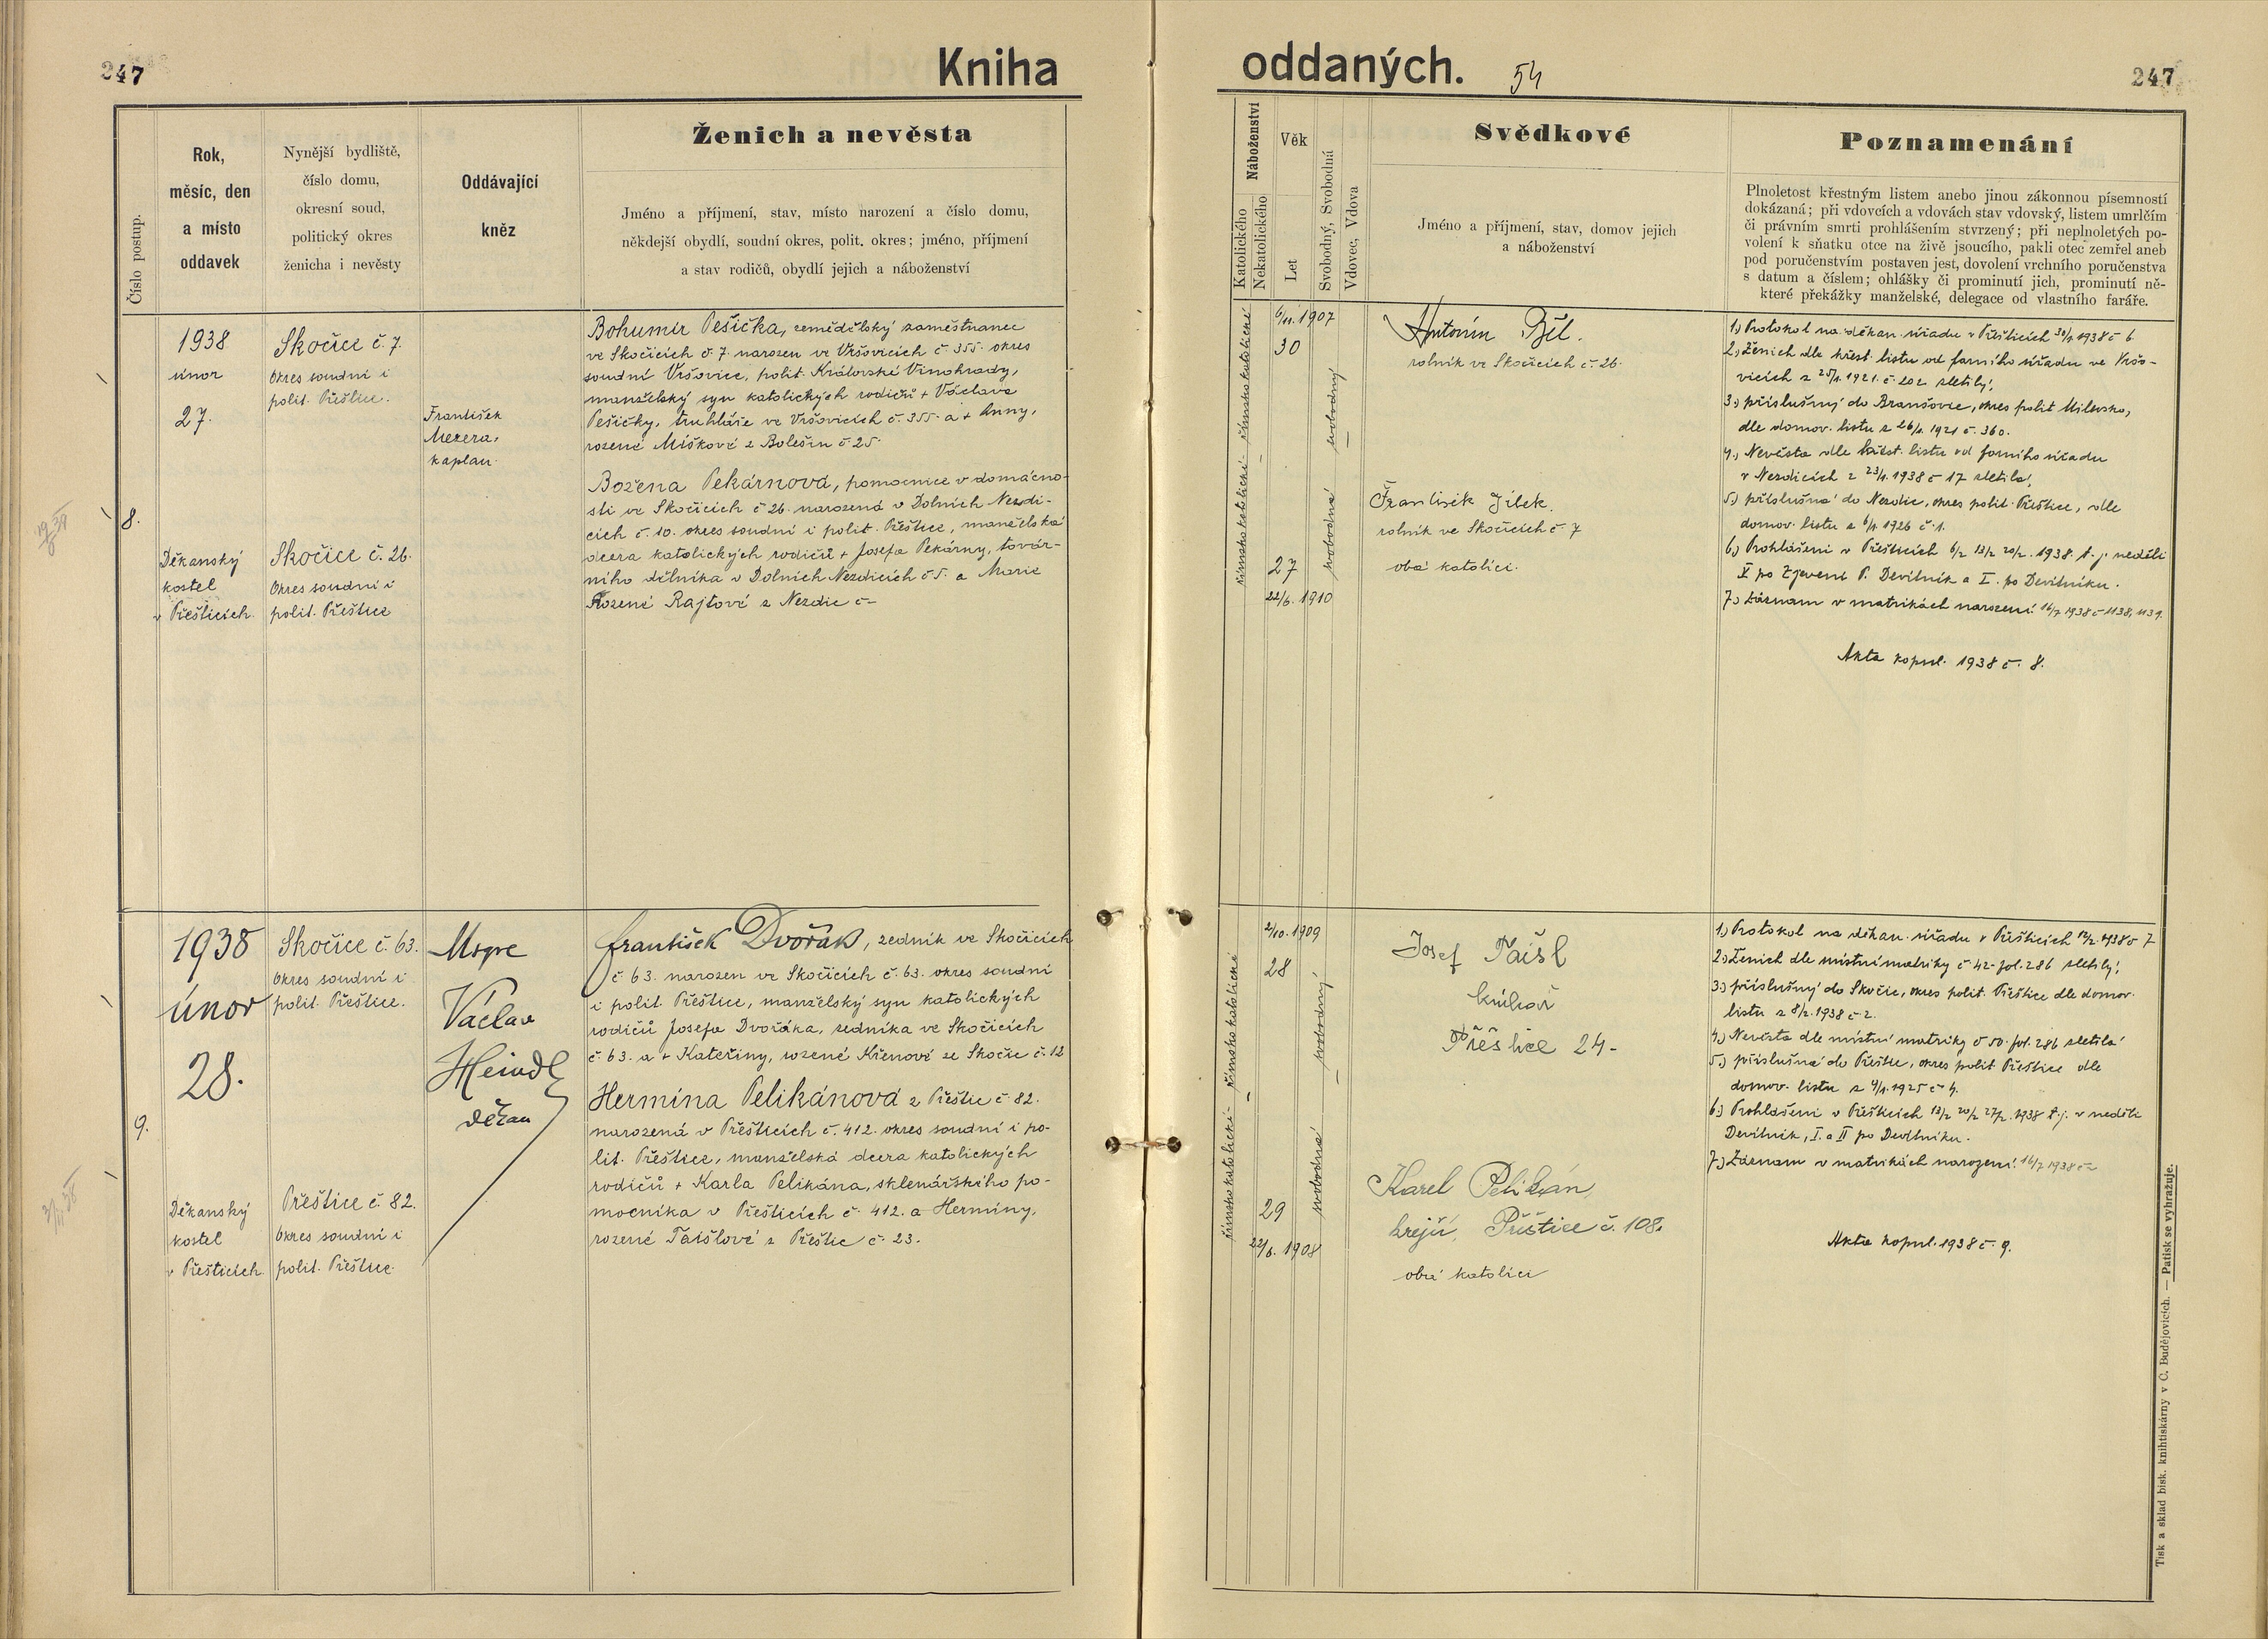 247
Kniha
oddaných.
54
247
Číslo postup.
Rok,
měsíc, den
a místo
oddavek
Nynější bydliště,
číslo domu,
okresní soud,
politický okres
ženicha i nevěsty
Oddávající
kněz
Ženich a nevěsta
Jméno a příjmení, stav, místo narození a číslo domu,
někdejší obydlí, soudní okres, polit. okres; jméno, příjmení
a stav rodičů, obydlí jejich a náboženství
Náboženství
Katolického
Nekatolického
Věk
Let
Svobodný, Svobodná
Vdovec, Vdova
Svědkové
Jméno a příjmení, stav, domov jejich
a náboženství
Poznamenání
Plnoletost křestným listem anebo jinou zákonnou písemností
dokázaná; při vdovcích a vdovách stav vdovský, listem umrlčím
či právním smrti prohlášením stvrzený; při neplnoletých po-
volení k sňatku otce na živě jsoucího, pakli otec zemřel aneb
pod poručenstvím postaven jest, dovolení vrchního poručenstva
s datum a číslem; ohlášky či prominutí jich, prominutí ně-
které překážky manželské, delegace od vlastního faráře.
8.
1938
únor
27.
Děkanský
kostel
v Přešticích.
Skočice č. 7.
Okres soudní i
polit. Přeštice.
Skočice č. 26.
Okres soudní i
polit. Přeštice
František
Mezera,
kaplan.
Bohumír Pešička, zemědělský zaměstnanec
ve Skočicích č. 7. narozen ve Vršovicích č. 355. okres
soudní Vršovice, polit. Královské Vinohrady,
manželský syn katolických rodičů + Václava
Pešičky, truhláře ve Vršovicích č. 355. a + Anny,
rozené Míškové z Bolešin č 25.
Božena Pekárnová, pomocnice v domácno-
sti ve Skočicích č 26. narozená v Dolních Nezdi-
cích č. 10. okres soudní i polit. Přeštice, manželská
dcera katolických rodičů + Josefa Pekárny, továr-
ního dělníka v Dolních Nezdicích č 5. a Marie
Rozené Rajtové z Nezdic č –
římsko katolické – římsko katolické
6/11. 1907
30
27
22/6. 1910
svobodný
svobodná
Antonín Běl.
rolník ve Skočicích č. 26.
František Jílek.
rolník ve Skočicích č. 7
oba katolíci.
1.) Protokol na děkan. úřadu v Přešticích 30/1. 1938 č 6
2.) Ženich dle křest. listu od farního úřadu ve Vršo-
vicích z 25/1. 1921. č. 202 zletilý,
3.) příslušný do Branšovic, okres polit Milevsko,
dle domov. listu z 26/1. 1921 č. 360.
4.) Nevěsta dle křest. listu od farního úřadu
v Nezdicích z 23/1. 1938 č 17 zletilá,
5.) příslušná do Nezdic, okres polit. Přeštice, dle
domov. listu z 6/1. 1926 č. 1.
6.) Prohlášeni v Přešticích 6/2 13/2 20/2. 1938. t. j. neděli
V po Zjevení P. Devítník a I. po Devítníku.
7.) Záznam v matrikách narození 16/7 1938 č 1138, 1139.
Akta kopul. 1938 č. 8.
9.
1938
únor
28.
Děkanský
kostel
v Přešticích.
Skočice č. 63.
Okres soudní i
polit. Přeštice.
Přeštice č. 82.
Okres soudní i
polit. Přeštice.
Msgre
Václav
Heindl
děkan
František Dvořák, zedník ve Skočicích
č 63. narozen ve Skočicích č. 63. okres soudní
i polit. Přeštice, manželský syn katolických
rodičů Josefa Dvořáka, zedníka ve Skočicích
č 63. a + Kateřiny, rozené Křenové ze Skočic č. 12
Hermína Pelikánová z Přeštic č. 82.
narozená v Přešticích č. 412. okres soudní i po-
lit. Přeštice, manželská dcera katolických
rodičů + Karla Pelikána, sklenářského po-
mocníka v Přešticích č. 412. a Hermíny,
rozené Taišlové z Přeštic č. 23.
římsko katolické – římsko katolické
2/10. 1909
28
29
22/6. 1908
svobodný
svobodná
Josef Taišl
knihař
Přeštice 24-
Karel Pelikán,
krejčí, Přeštice č. 108.
oba katolíci
1.) Protokol na děkan. úřadu v Přešticích 12/2. 1938 č 7
2.) Ženich dle místní matriky č 42 – fol. 286 zletilý,
3.) příslušný do Skočic, okres polit. Přeštice dle domov.
listu z 8/2. 1938 č 2.
4.) Nevěsta dle místní matriky č 50. fol. 286 zletilá
5.) příslušná do Přeštic, okres polit Přeštice dle
domov. listu z 4/1. 1925 č 4.
6.) Prohlášeni v Přešticích 13/2 20/2 27/2. 1938 t. j. v neděli
Devítník, I. a II po Devítníku.
7.) Záznam v matrikách narození. 16/7 1938 č –
Akta kopul. 1938 č. 9.
Tisk a sklad bisk. knihtiskárny v Č. Budějovicích. — Patisk se vyhražuje.